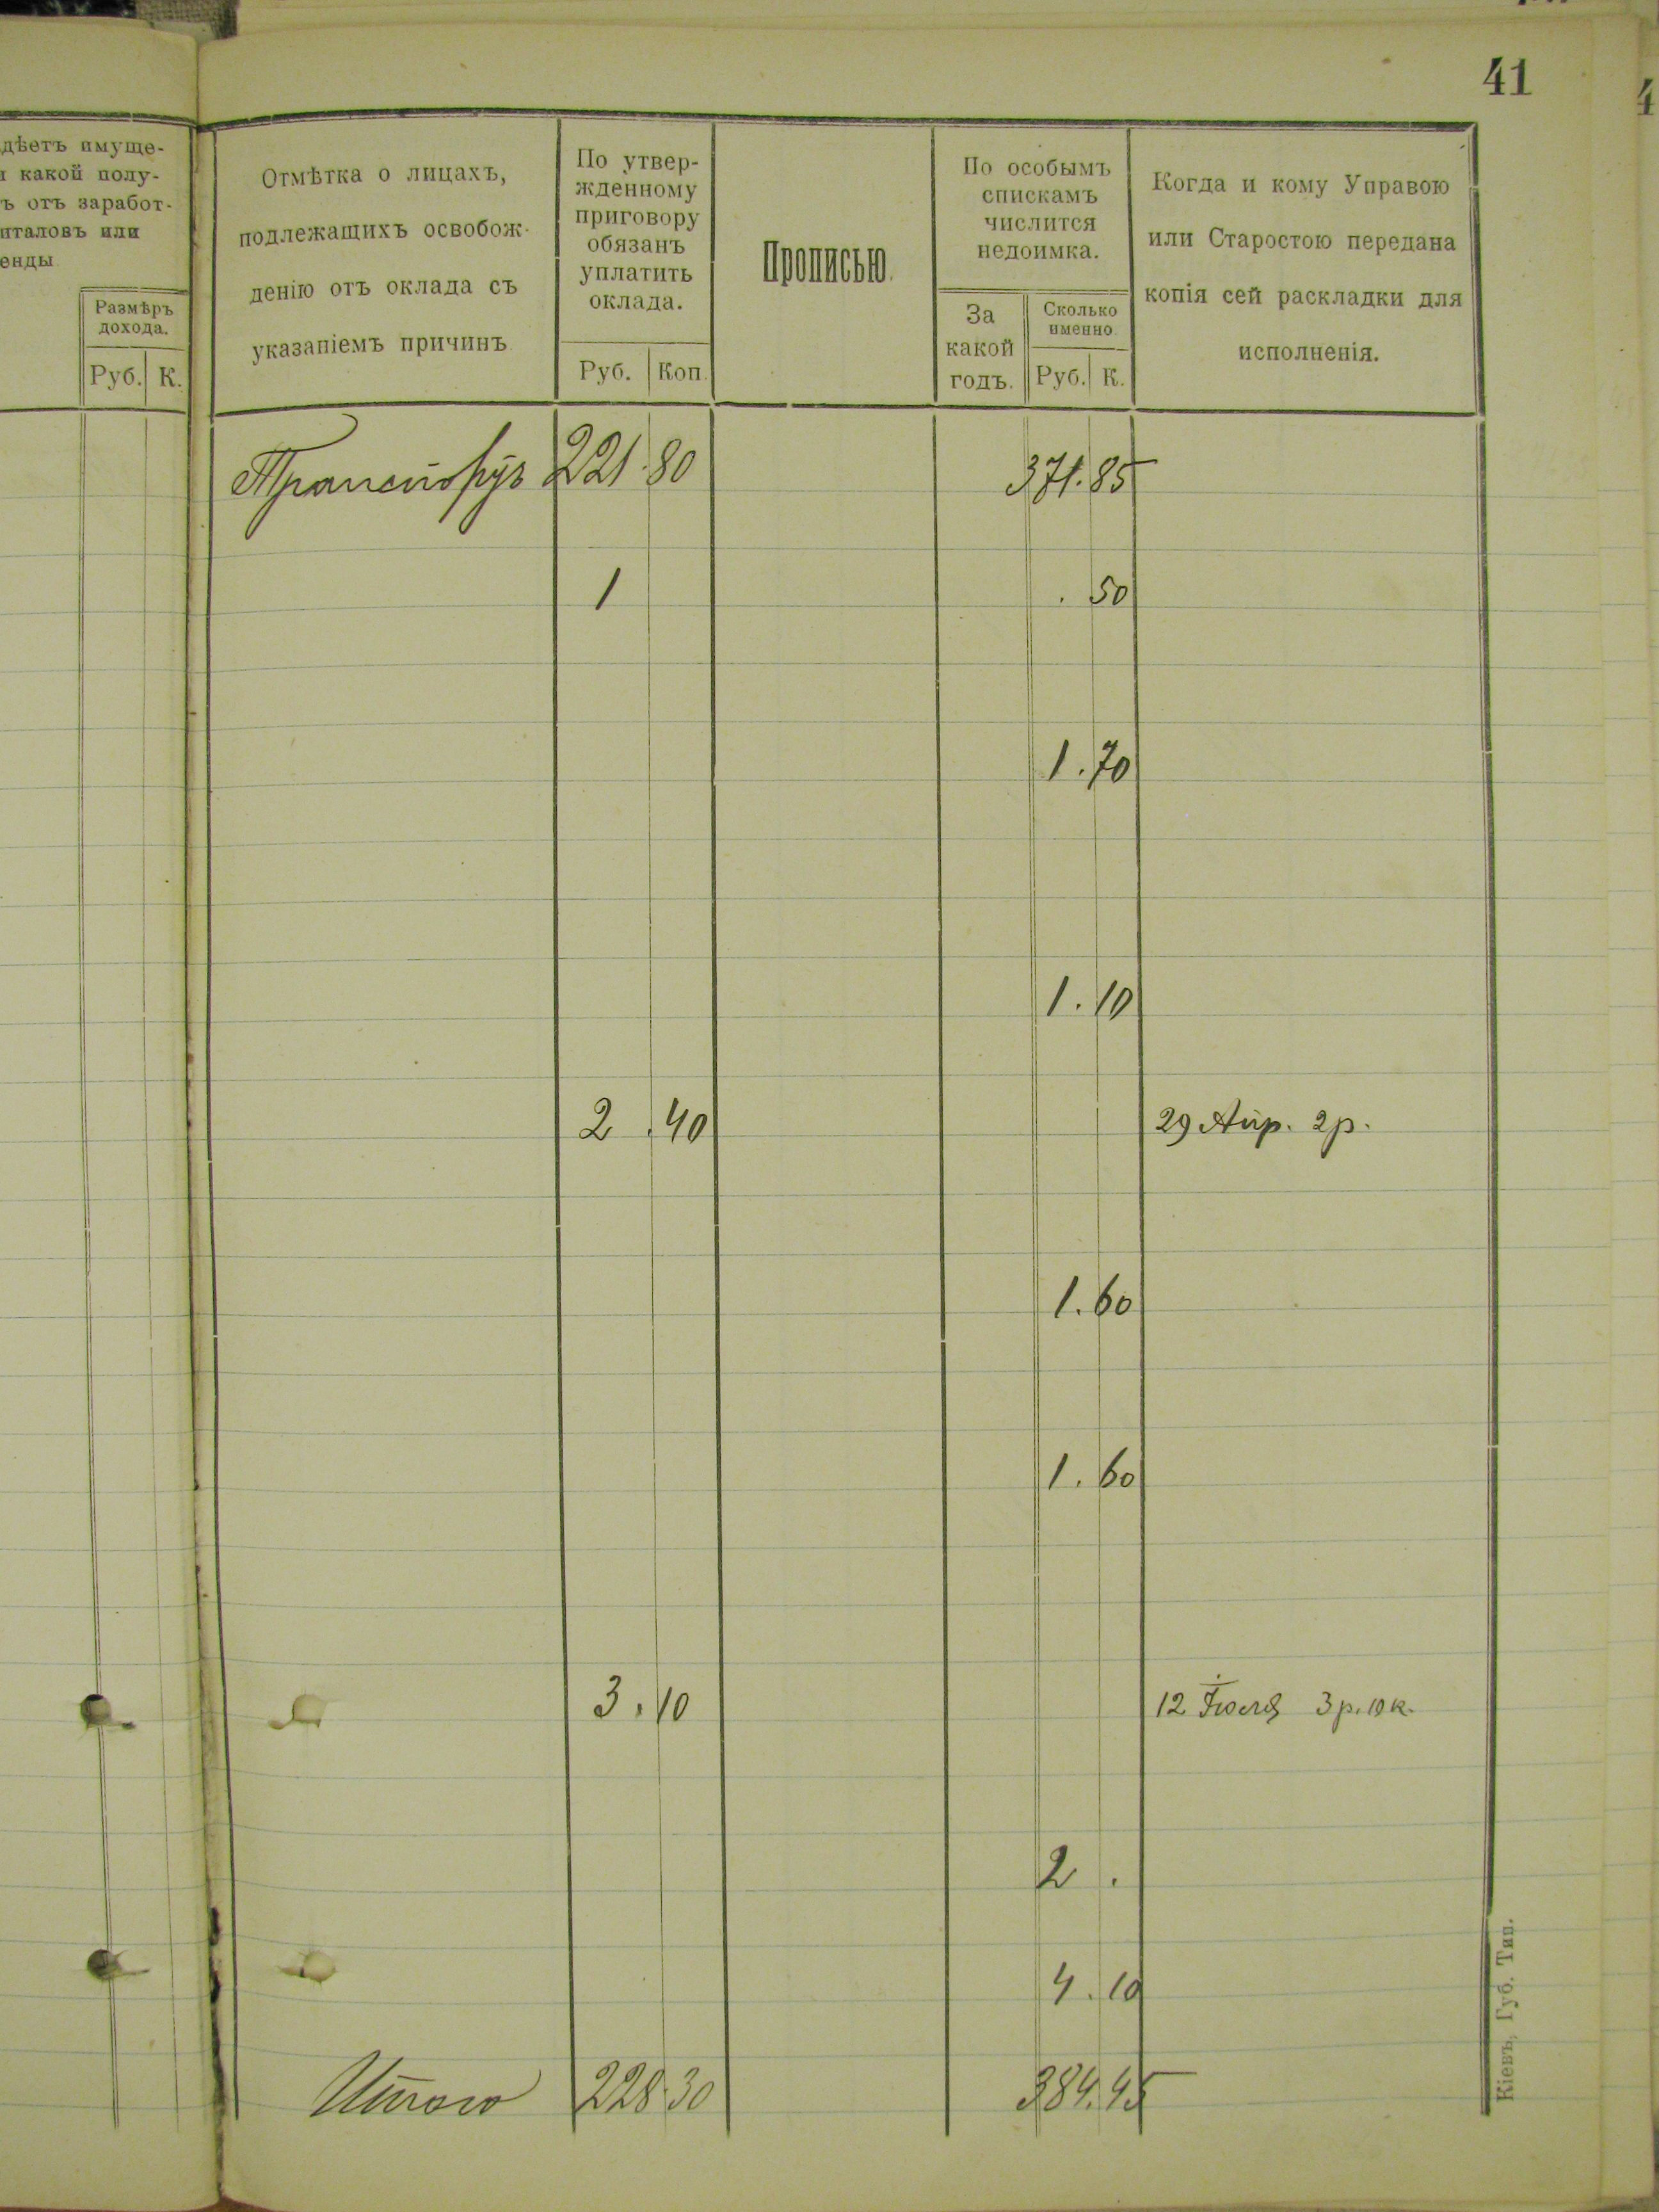 41
4
дѣетъ имуще-
и какой полу-
ъ отъ заработ-
италовъ или
енды
Размѣръ
дохода.
Руб. К.
Отмѣтка о лицахъ,
подлежащихъ освобож-
денію отъ оклада съ
указаніемъ причинъ
По утвер-
жденному
приговору
обязанъ
уплатить
оклада.
Руб. Коп.
Прописью.
По особымъ
спискамъ
числится
недоимка.
За
какой
годъ.
Сколько
именно.
Руб. К.
Когда и кому Управою
или Старостою передана
копія сей раскладки для
исполненія.
Транспортъ 221.80 371.85
1 . 50
1.70
1.10
2.40 29 Апр. 2р.
1.60
1.60
3.10 12 Іюля 3р.10к.
2 .
4.10
Итого 228.30 384.45
Кіевъ, Губ. Тип.